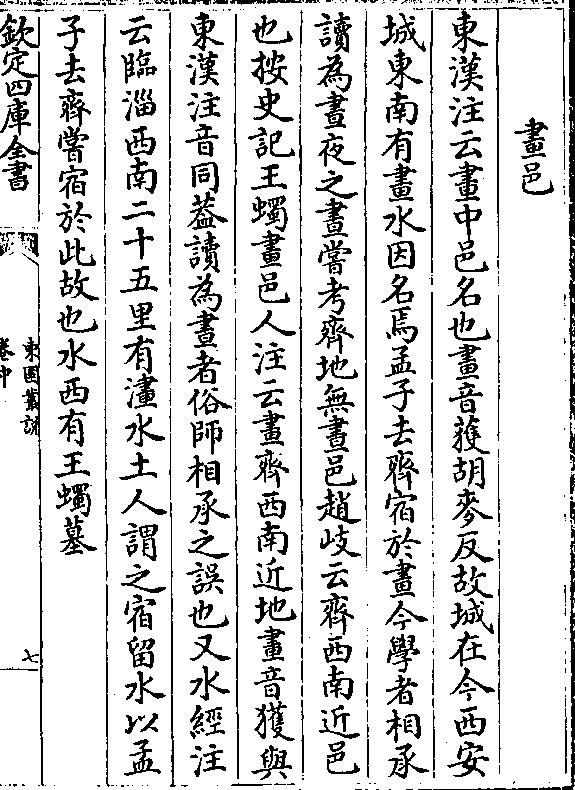 畫邑
東漢注云畫中邑名也畫音蒦胡麥反故城在今西安
城東南有畫水因名焉孟子去齊宿於畫今學者相承
讀為晝夜之晝嘗考齊地無晝邑趙岐云齊西南近邑
也按史記王蠋畫邑人注云畫齊西南近地畫音獲與
東漢注音同葢讀為晝者俗師相承之誤也又水經注
云臨淄西南二十五里有澅水土人謂之宿留水以孟
子去齊嘗宿於此故也水西有王蠋墓
欽定四庫全書
東園叢說
卷中
七